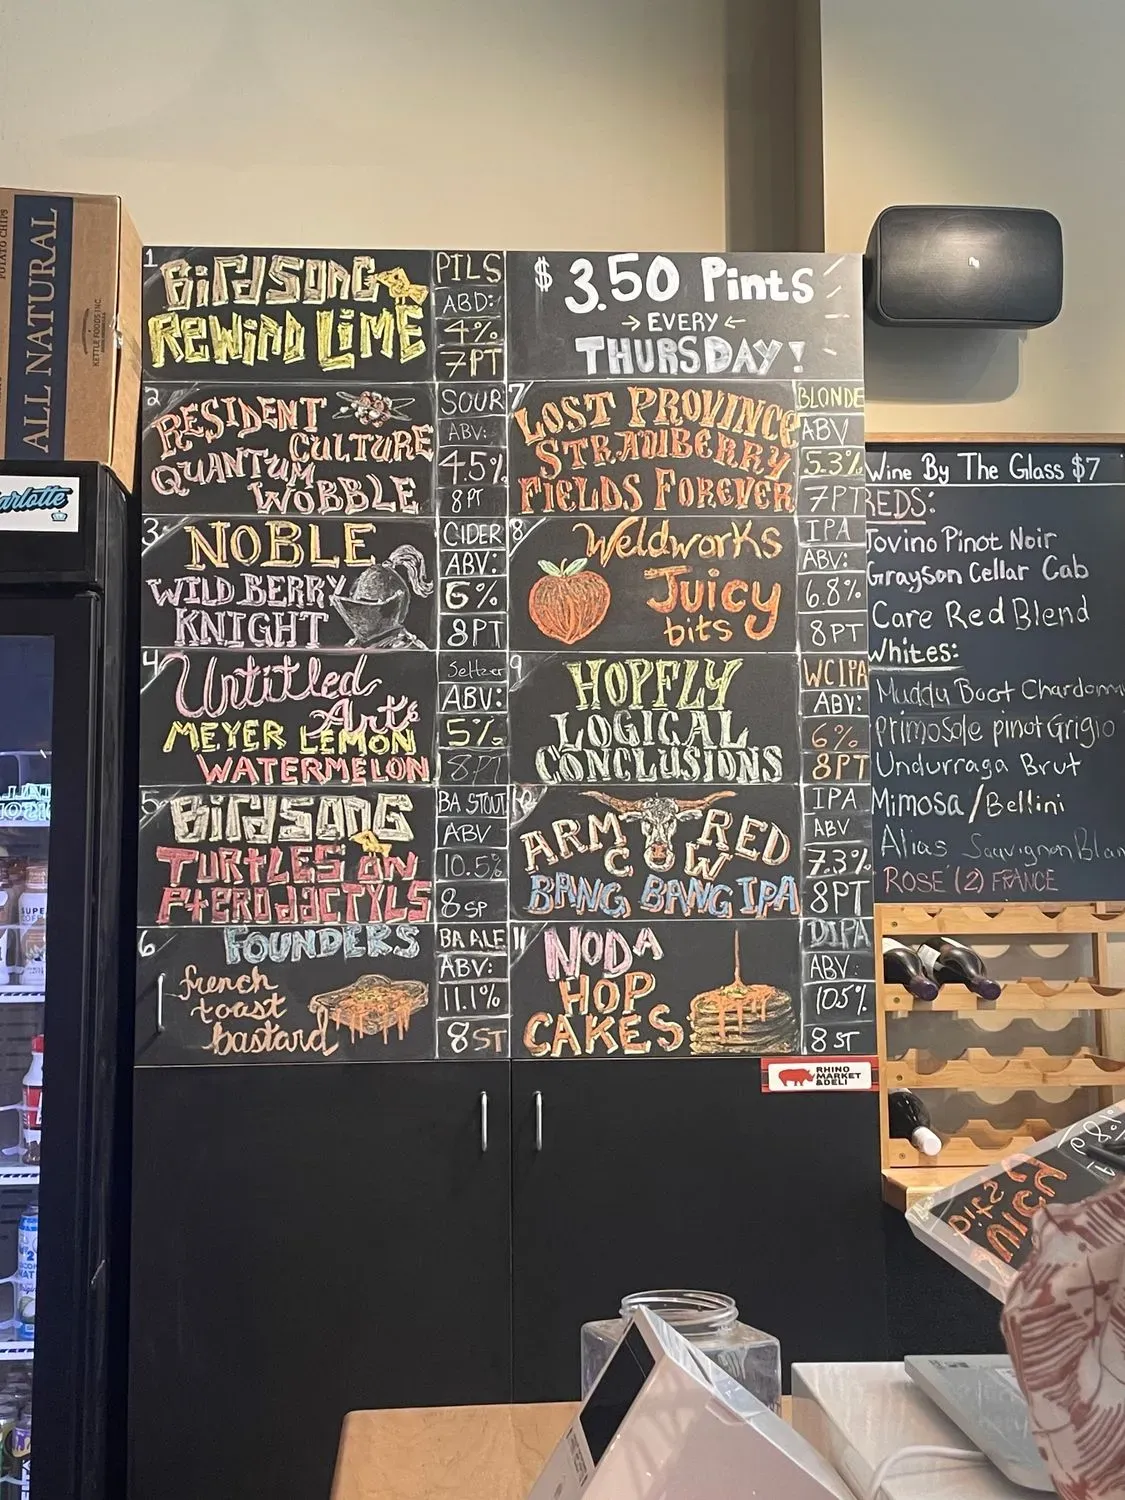 POTATO CHIPS
ALL NATURAL
KETTLE FOODS INC.
1
Birdsong
Rewind Lime
PILS
ABD:
4%
7PT
$3.50 Pints
→ EVERY ←
THURSDAY!
2
RESIDENT
CULTURE
QUANTUM
WOBBLE
SOUR
ABV:
4.5%
8PT
7
LOST PROVINCE
STRAWBERRY
FIELDS FOREVER
BLONDE
ABV
5.3%
7PT
3
NOBLE
WILD BERRY
KNIGHT
CIDER
ABV:
6%
8PT
8
Weldworks
Juicy
bits
IPA
ABV:
6.8%
8PT
4
Untitled
Art
MEYER LEMON
WATERMELON
Seltzer
ABV:
5%
8PT
9
HOPFLY
LOGICAL
CONCLUSIONS
WCIPA
ABV:
6%
8PT
5
Birdsong
TURTLES ON
PTERODACTYLS
BA STOUT
ABV
10.5%
8SP
10
ARM RED
COW
BANG BANG IPA
IPA
ABV
7.3%
8PT
6
FOUNDERS
french
toast
bastard
BA ALE
ABV:
11.1%
8ST
11
NODA
HOP
CAKES
DIPA
ABV:
10.5%
8ST
RHINO
MARKET
&DELI
Wine By The Glass $7
REDS:
Jovino Pinot Noir
Grayson Cellar Cab
Care Red Blend
Whites:
Muddy Boot Chardonn
Primosole pinot Grigio
Undurraga Brut
Mimosa/Bellini
Alias Sauvignon Blan
ROSE (2) FRANCE
arlotte
SUPE
Juicy
bits